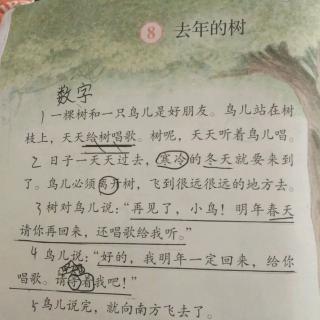 8 去年的树
数字
1 一棵树和一只鸟儿是好朋友。鸟儿站在树
枝上,天天给树唱歌。树呢,天天听着鸟儿唱。
2 日子一天天过去,寒冷的冬天就要来到
了。鸟儿必须离开树,飞到很远很远的地方去。
3 树对鸟儿说:“再见了,小鸟!明年春天
请你再回来,还唱歌给我听。”
4 鸟儿说:“好的,我明年一定回来,给你
唱歌。请等着我吧!”
5 鸟儿说完,就向南方飞去了。